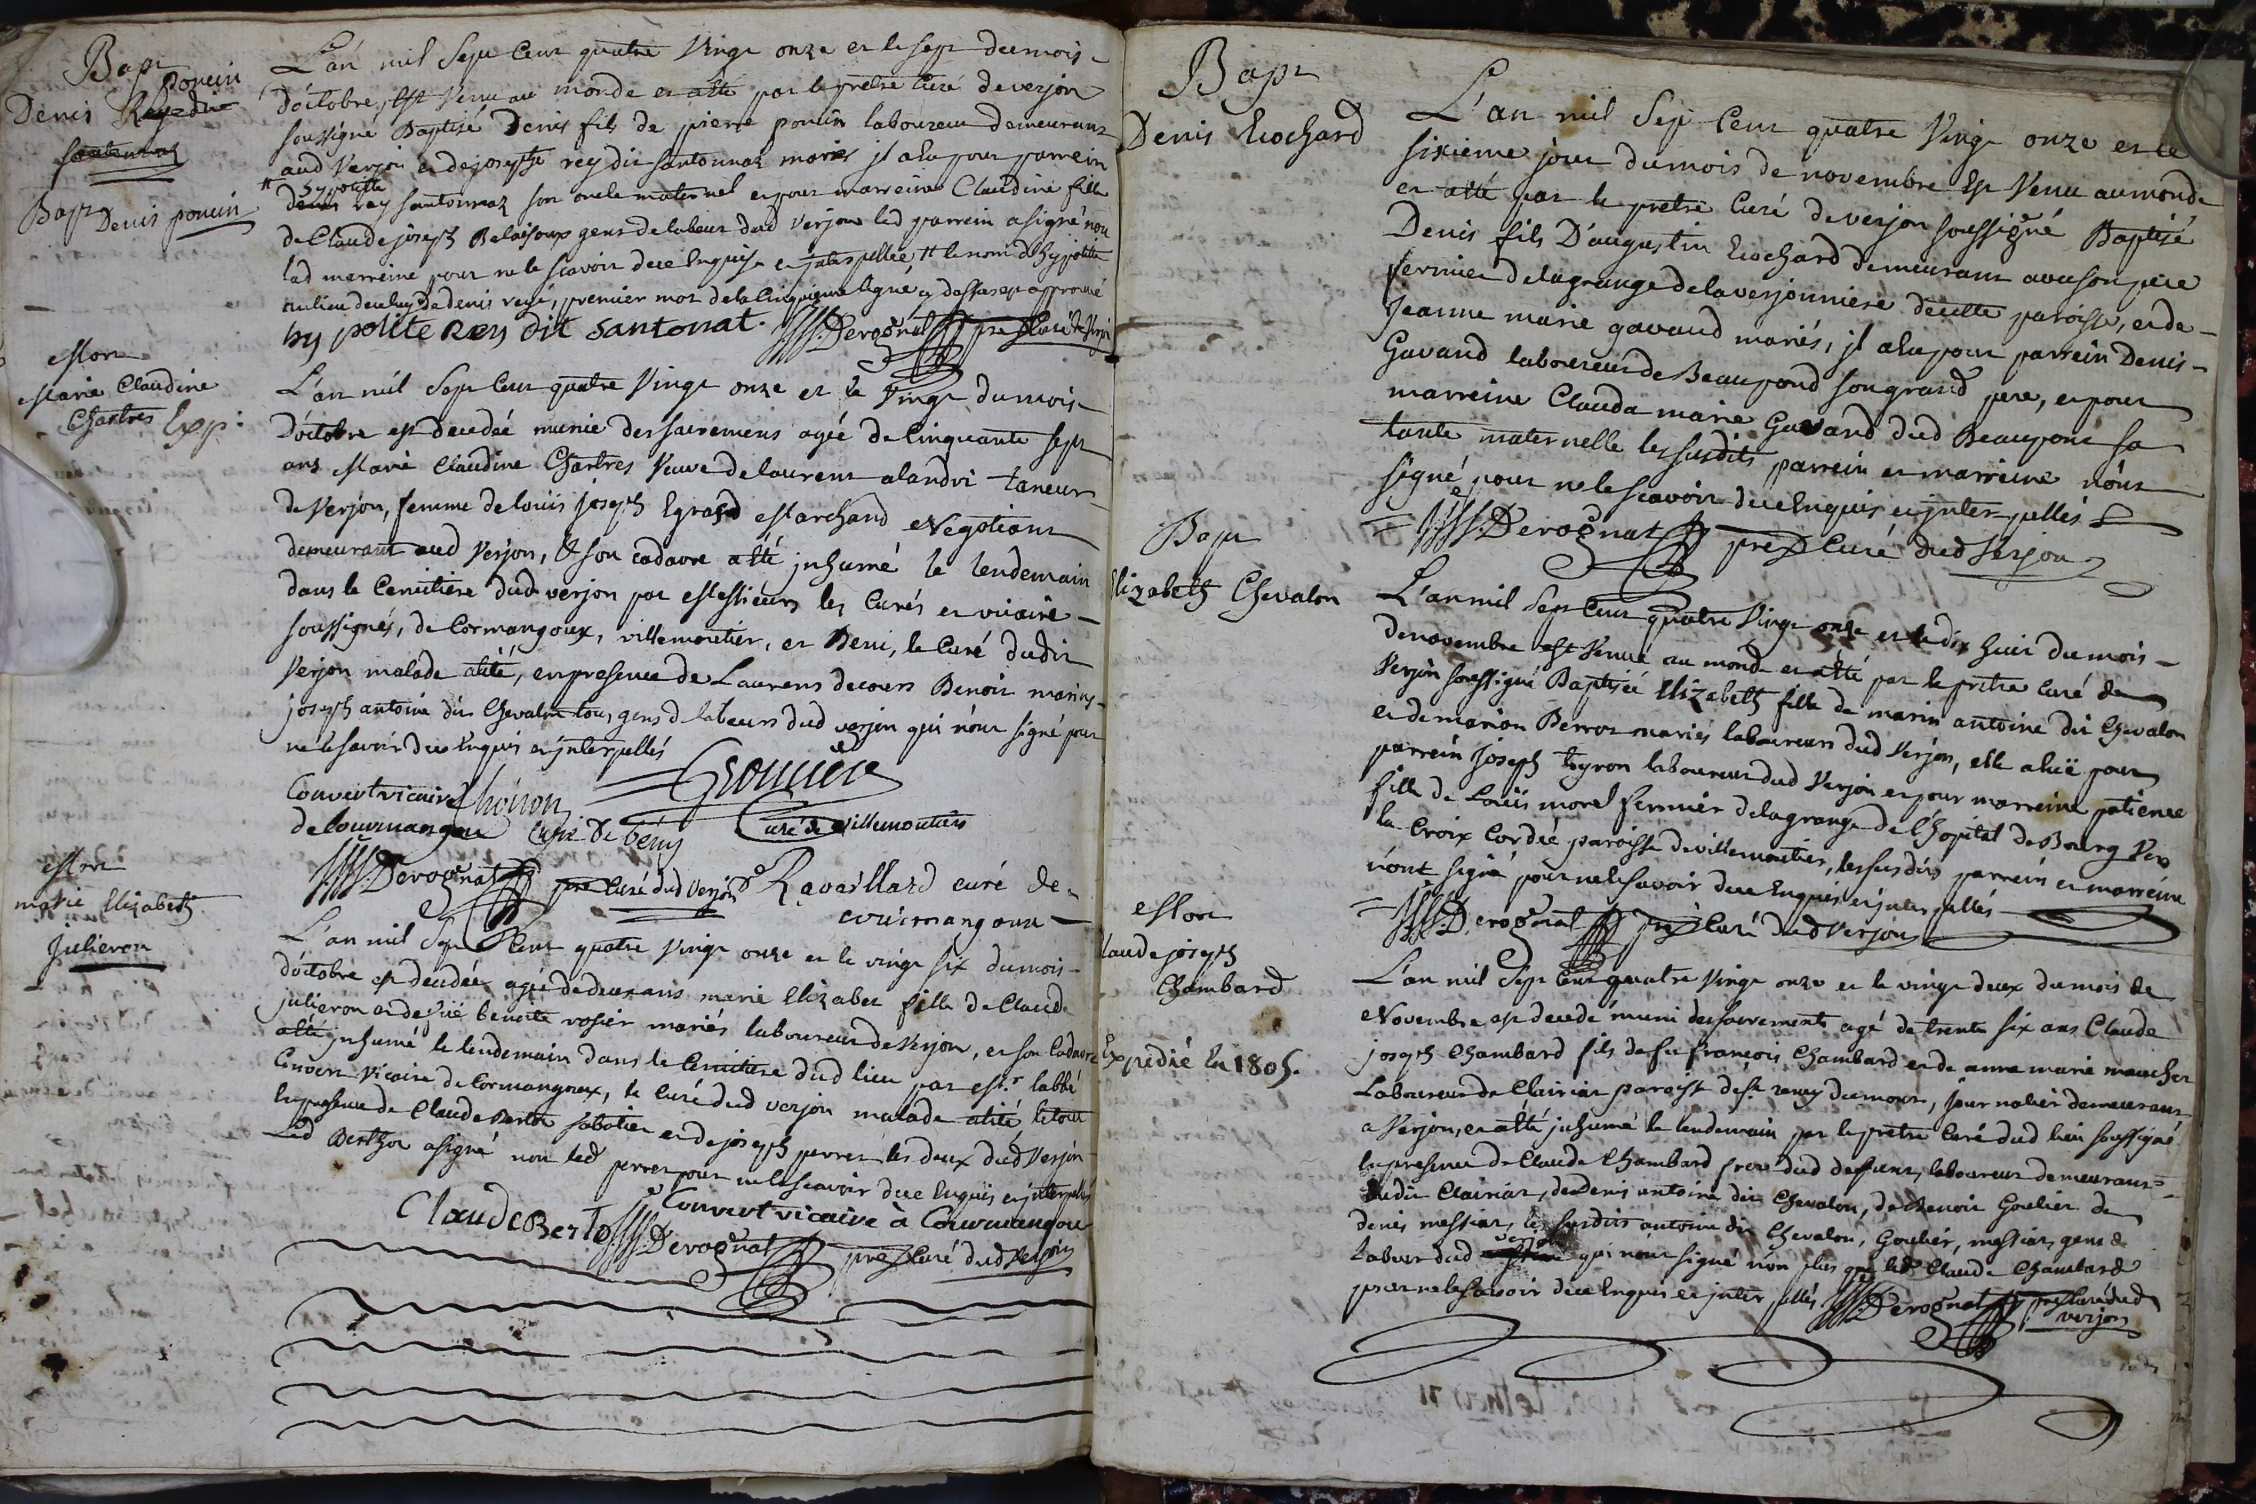 Bapt
Denis poncin
Bapt Denis poncin
L'an mil Sept Cent quatre Vingt onze et le sept du mois
D'octobre, Est Venu au monde et atté par le prètre Curé de verjon
soussigné Baptisé Denis fils de pierre poncin laboureur demeurant
aud Verjon et de josephe rey dit santonnaz mariés jl a eu pour parrein
hypolitte rey santonnaz son oncle maternel et pour marreine Claudine fille
de Claude joseph gens de labeur dud Verjon led parrein a signé non
lad marreine pour ne le scavoir de ce Enquise et jnterpellée, # le nom d'hypolitte
au lieu de celuy de denis rayé, premier mot de la Cinquieme ligne cy dessus est approuvé
hypolite Rey dit santonat. Derognat pre Curé de Verjon
Mort
Marie Claudine
Chartres Exp:
L'an mil Sept Cent quatre Vingt onze et le Vingt du mois
D'octobre est decedée munie des sacremens agée de Cinquante sept
ans Marie Claudine Chartres Veuve de laurent alandri taneur
de Verjon, femme de loüis joseph Egraz Marchand Négotiant
demeurant aud Verjon, & son cadavre atté jnhumé le lendemain
dans le Cemitiere dud verjon par Messieurs les Curés et vicaire
soussignés, de Cormangoux, villemoutier, et Beni, le Curé dudit
Verjon malade alité, en presence de Laurens decoeurs Benoit marins
joseph antoine dit Chevalon tous gens de labeurs dud verjon qui n'ont signé pour
ne le savoir de ce Enquis et jnterpellés
Convert vicaire
de Courmangoux Curé de bény Curé de villemoutiers
Derognat pre Curé dud Verjon Ravaillard curé de
courmangoux
Mort
marie Elizabeth
Julieron
L'an mil Sept Cent quatre Vingt onze et le vingt six du mois
d'octobre est decedée agée de deux ans marie Elizabet fille de Claude
julieron et de benoite rosier mariés laboureur de Verjon, et son Cadavre
atté jnhumé le lendemain dans le Cemitiere dud lieu par Mr l'abbé
Convert Vicaire de Cormangoux, le Curé dud verjon malade alité le tout
En presence de Claude Berthot sabotier et de joseph perret les deux dud Verjon
Led Berthot a signé non led perret pour ne le scavoir de ce Enquis et jnterpellé
Convert vicaire à Courmangoux
Claude Berto Derognat pre Curé dud Verjon
Bapt
Denis Ecochard
L'an mil Sept Cent quatre Vingt onze et le
sixieme jour du mois de novembre Est Venu au monde
et atté par le pretre Curé de verjon soussigné Baptisé
Denis fils D'augustin Ecochard demeurant avec son pere
fermier de la grange de la verjonniere de cette paroisse, et de
Jeanne marie gavand mariés, jl a eu pour parrein Denis
Gavand laboureur de Beaupond son grand pere, et pour
marreine Clauda marie Gavand dud Beaupont sa
tante maternelle les susdits parrein et marreine n'ont
signé pour ne le scavoir de ce Enquis et jnterpellés
Derognat pre Curé dud Verjon
Bapt
Elizabeth Chevalon
L'an mil Sept Cent quatre Vingt onze et le dix huit du mois
de novembre est Venue au monde et atté par le prètre Curé de
Verjon soussigné Baptisée Elizabeth fille de marin antoine dit Chevalon
et de marion Perrot mariés laboureurs dud Verjon, elle a eüe pour
parrein Joseph laboureur dud Verjon et pour marreine patience
fille de Loüis morel fermier de la grange de l'hopital de Bourg Vers
la Croix paroisse de villemoutier, les susdits parrein et marreine
n'ont signé pour ne le savoir de ce Enquis et jnterpellés
Derognat pre Curé dud Verjon
Mort
Claude joseph
Chambard
Expedié En 1805.
L'an mil Sept Cent quatre Vingt onze et le vingt deux du mois de
Novembre est decedé muni des sacrements agé de trente six ans Claude
joseph Chambard fils de feu françois Chambard et de anne marie
Laboureur de Clairiat paroisse de St remy du mont, journalier demeurant
a Verjon, et atté jnhumé le lendemain par le prètre Curé dud lieu soussigné
En presence de Claude Chambard frere dud deffunt, laboureur demeurant
audit Clairiat, de denis antoine dit Chevalon, de Benoit Goulier de
denis messiat, les susdits antoine dit Chevalon, Goulier, messiat, gens de
Labeur dud verjon qui n'ont signé non plus que led Claude Chambard
pour ne le savoir de ce Enquis et jnterpellés Derognat pre Curé dud
verjon